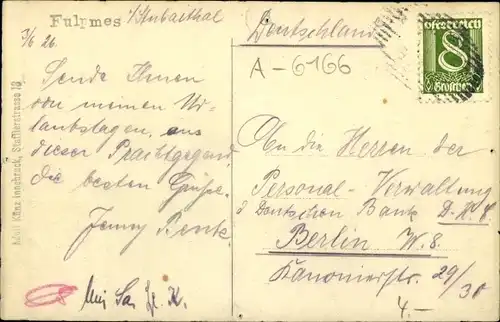 Fulpmes i/Stubaithal
3/6 26.
Sende Ihnen
von meinen Ur-
laubstagen, aus
dieser Prachtgegend
die besten Grüße.
Jenny
Adolf Künz, Innsbruck, Stafflerstrasse 18
Deutschland
A-6166
Österreich
8
Groschen
An die Herren der
Personal-Verwaltung
d Deutschen Bank
Berlin W. 8.
Kanonierstr. 29/30
4.-